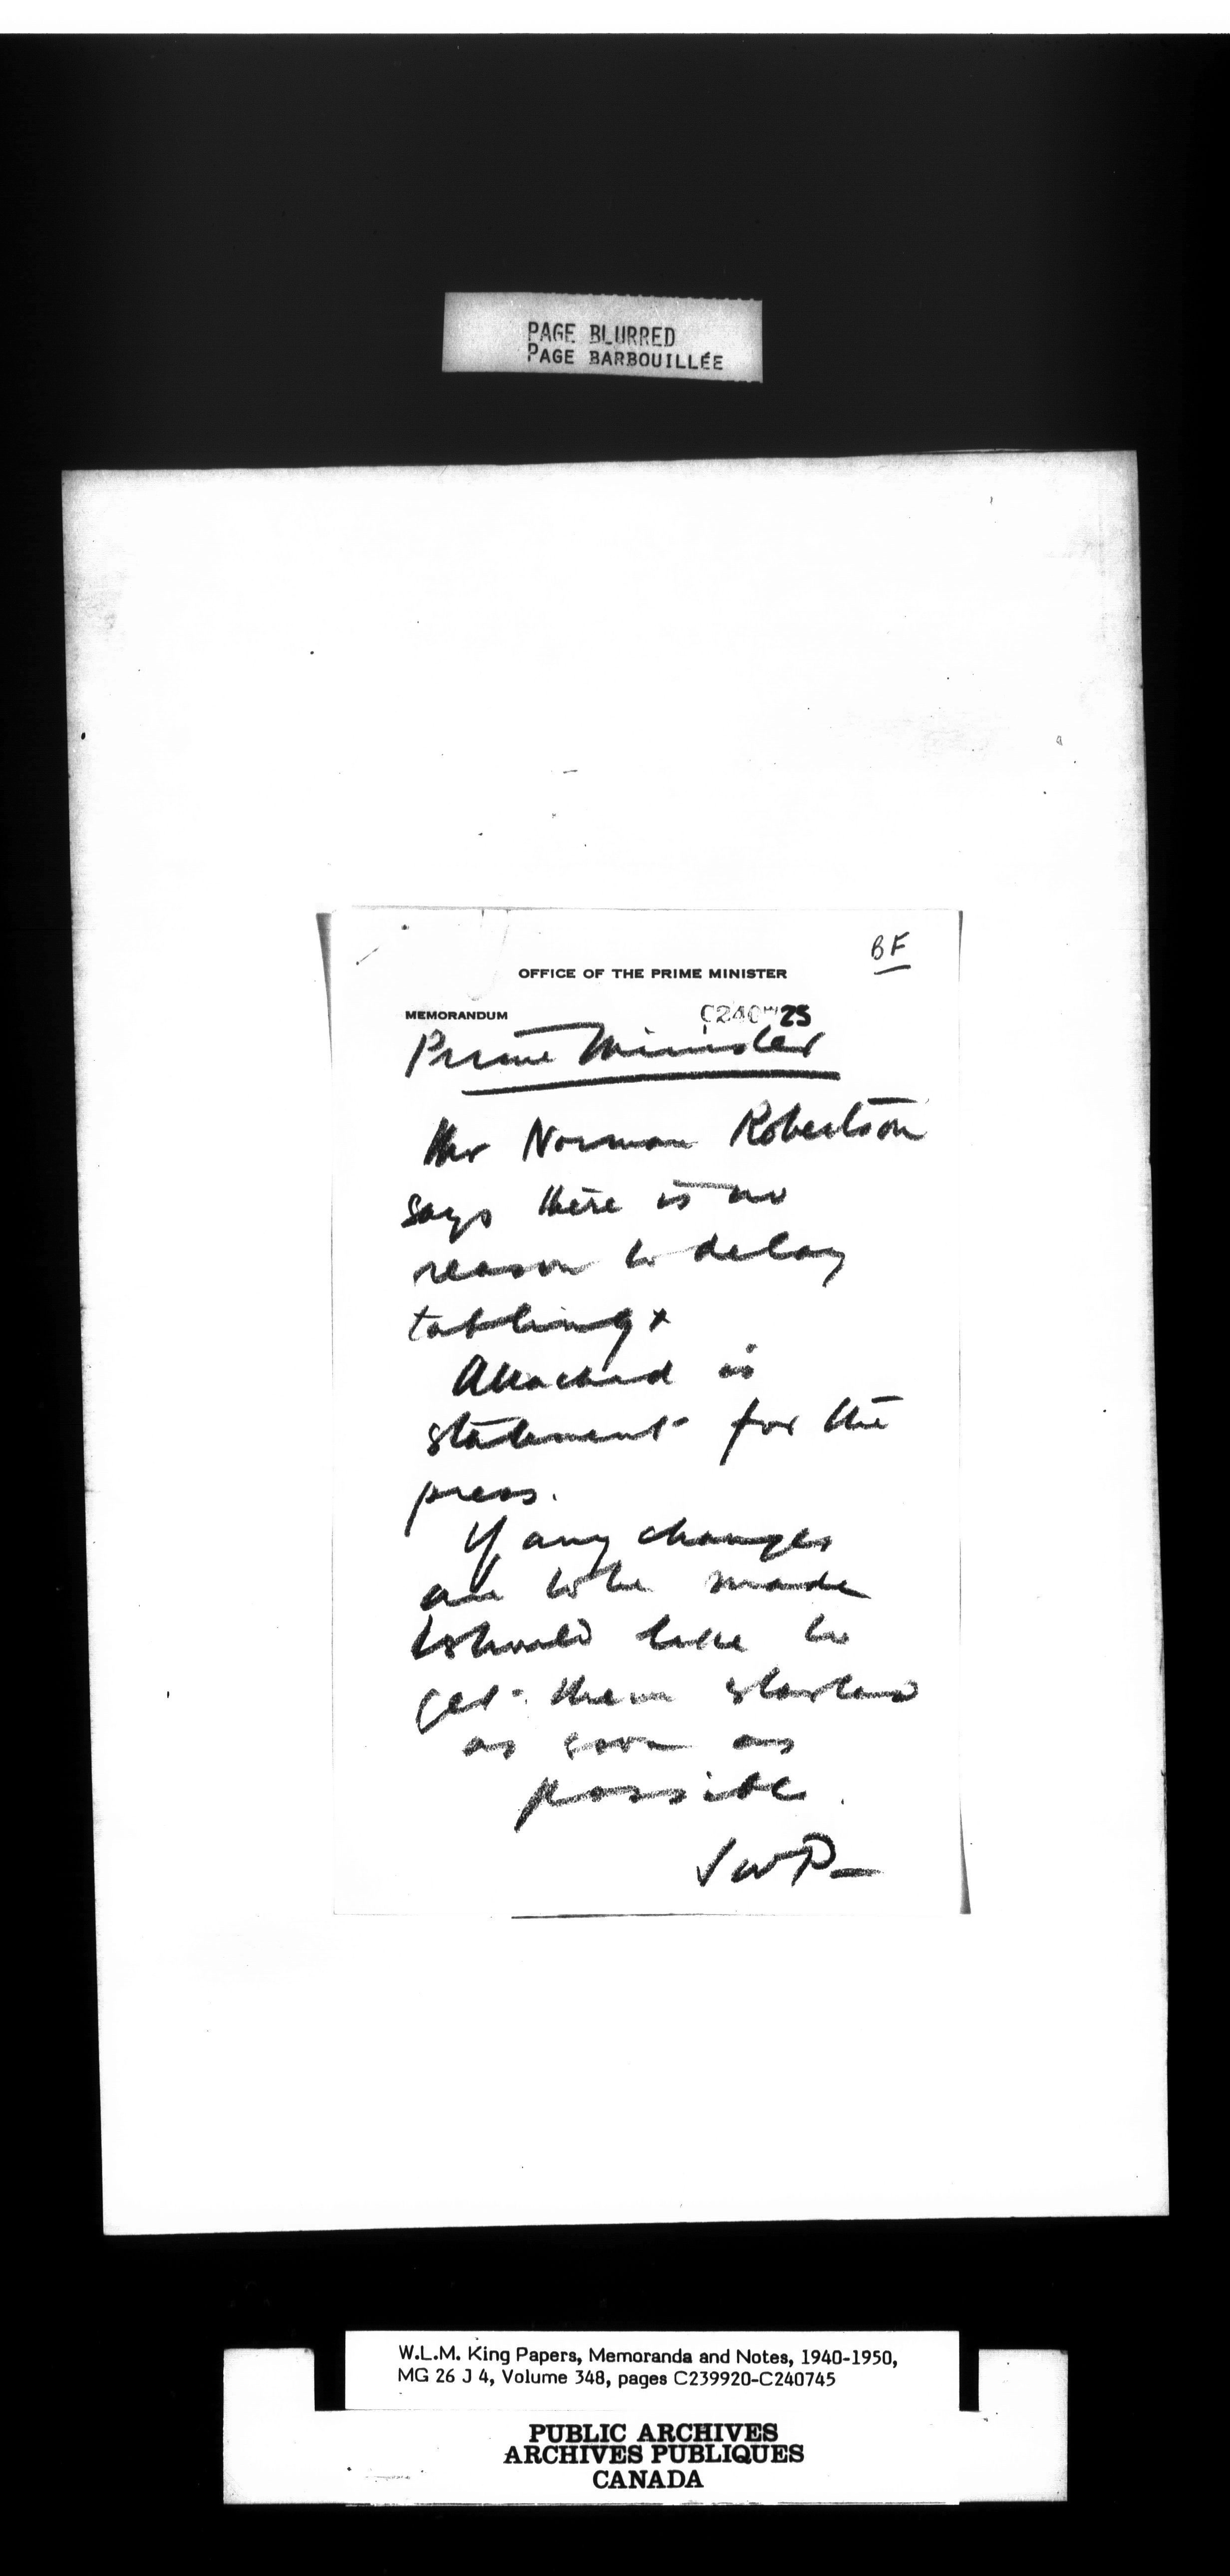 PAGE BLURRED
PAGE BARBOUILLÉE
BF
OFFICE OF THE PRIME MINISTER
MEMORANDUM
C240 25
Prime Minister
Mr Norman Robertson
says there is no
reason to delay
tabling x
Attached is
statement for the
press.
If any changes
are to be made
I should like to
get them started
as soon as
possible.
JWP
W.L.M. King Papers, Memoranda and Notes, 1940-1950,
MG 26 J 4, Volume 348, pages C239920-C240745
PUBLIC ARCHIVES
ARCHIVES PUBLIQUES
CANADA